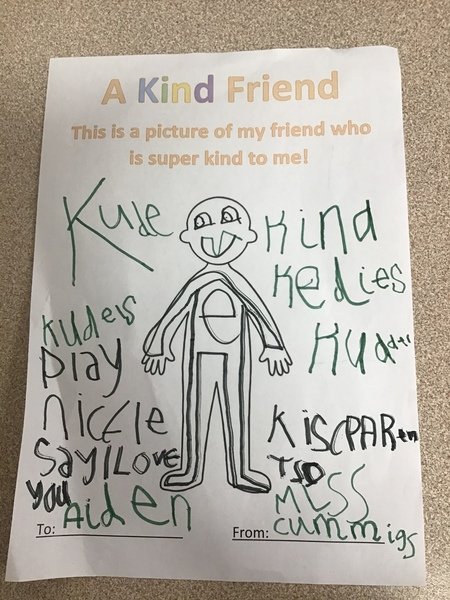 A Kind Friend
This is a picture of my friend who
is super kind to me!
Kude
Kind
Kedies
e
Kuders
play
niccle
Say I Love
you
Aiden
KiscPARen
MESS
cummigs
To:
From: